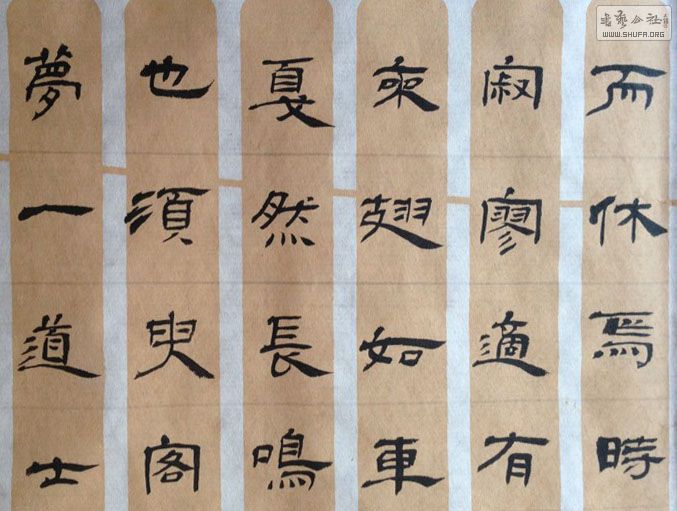 而休焉時
寂寥適有
來翅如車
戛然長鳴
也須臾客
夢一道士
書藝公社
WWW.SHUFA.ORG